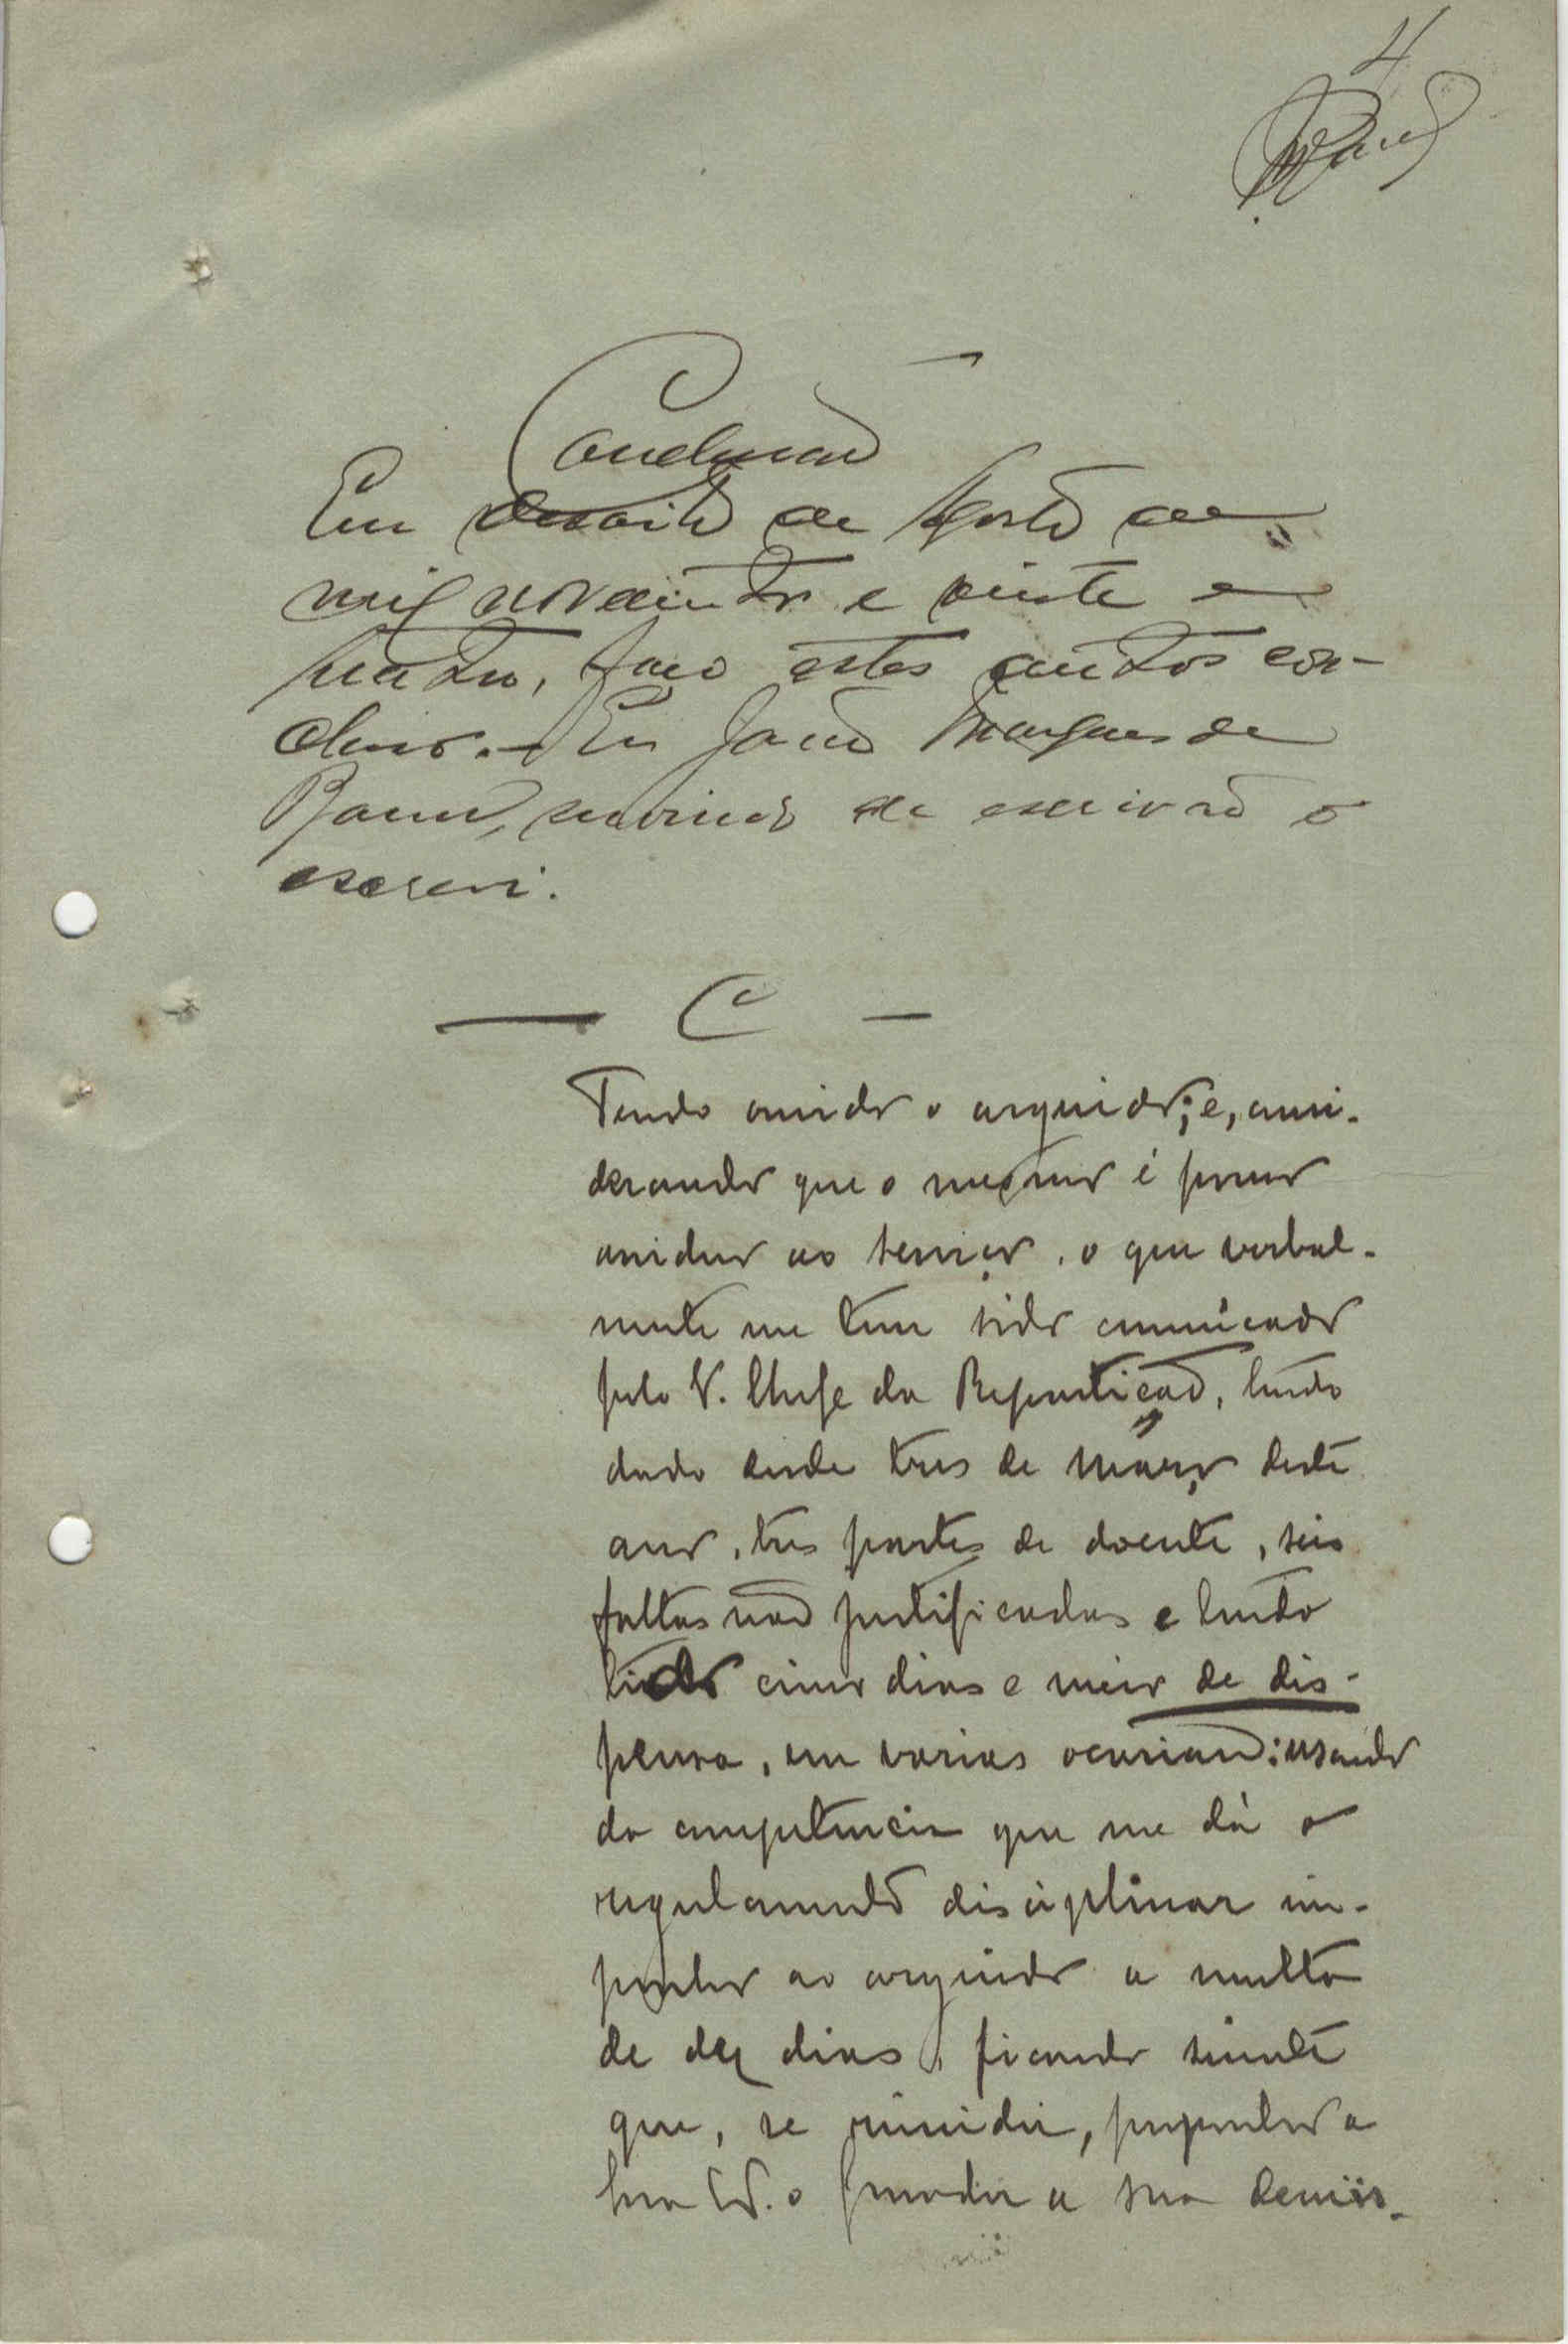 4
Conclusão
Em dezoito de Agosto de
mil novecentos e vinte e
quatro, faço estes autos con-
clusos. Eu Jaime Marques de
servindo de escrivão o
escrevi.
— C —
Tendo ouvido o arguido; e, consi-
derando que o mesmo é pouco
assiduo ao serviço, o que verbal-
mente me tem sido comunicado
pelo S. Chefe da Repartição, tendo
dado desde tres de Março deste
ano, tres partes de doente, seis
faltas não justificadas e tendo
tido cinco dias e meio de dis-
pensa, em varias ocasiões: usando
da competencia que me dá o
regulamento disciplinar im-
ponho ao arguido a multa
de dez dias, ficando sciente
que, se reincidir, proponho a
Sua a sua demis-